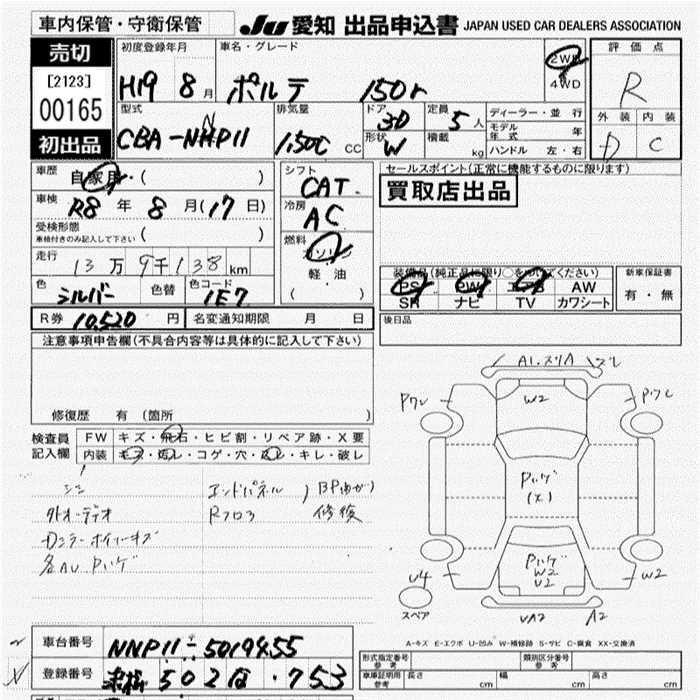 車内保管・守衛保管
JU 愛知 出品申込書 JAPAN USED CAR DEALERS ASSOCIATION
売切
[2123]
00165
初出品
初度登録年月 車名・グレード
H19 8月 ポルテ 150r
2WD
4WD
評価点
R
外装 内装
D C
型式 排気量 ドア 定員
CBA-NNP11 1,500 CC 3D 5人
形状 積載
W kg
ディーラー・並行
モデル年式 年
ハンドル 左・右
車歴 自家用 ( )
車検 R8年 8月(17日)
受検形態 ( )
車検付きのみ記入して下さい
走行 13万9千138km
色 シルバー 色替 色コード 1E7
シフト CAT.
冷房 AC
燃料 ガソリン
軽油
( )
セールスポイント(正常に機能するものに限ります)
買取店出品
装備品(純正品に限り○を
ください)
PS PW エアB AW
SR ナビ TV カワシート
新車保証書
有・無
R券 10,520円 名変通知期限 月 日
後日品
注意事項申告欄(不具合内容等は具体的に記入して下さい)
修復歴 有 (箇所 )
検査員記入欄
FW キズ・飛石・ヒビ割・リペア跡・X要
内装 キズ・汚レ・コゲ・穴・
・キレ・破レ
エンドパネル
外オーディオ Rフロア 修復
各AU Pハゲ
W2
Pハゲ
(X)
Pハゲ
W2
U2
U4
W2
スペア
UA2 A2
A-キズ E-エクボ U-凹み W-補修跡 S-サビ C-腐食 XX-交換済
車台番号 NNP11-5019455
登録番号 502 な・753
形式指定番号 参考 類別区分番号 参考
車庫証明用 参考 長さ cm 幅 cm 高さ cm